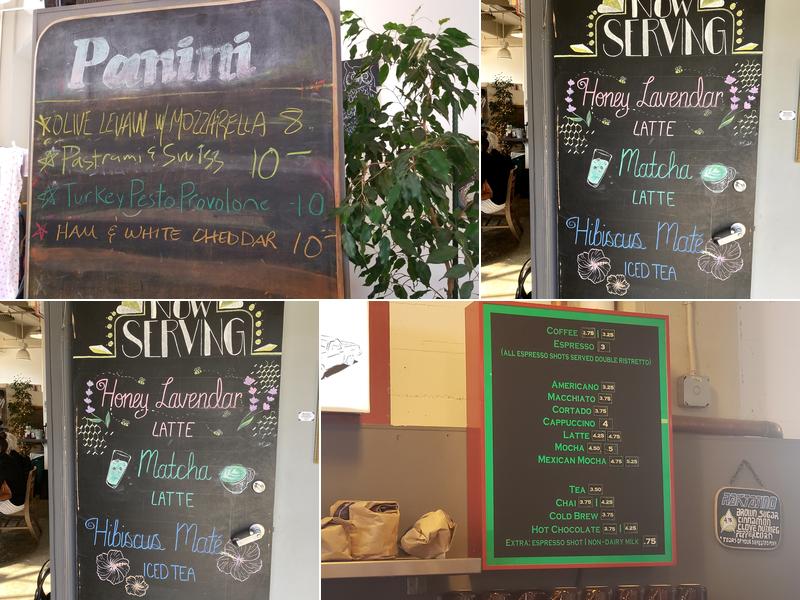 Panini
OLIVE LEVAIN W/ MOZZARELLA 8-
Pastrami & Swiss 10-
Turkey Pesto Provolone -10
HAM & WHITE CHEDDAR 10-
NOW
SERVING
Honey Lavendar
LATTE
Matcha
LATTE
Hibiscus Maté
ICED TEA
NOW
SERVING
Honey Lavendar
LATTE
Matcha
LATTE
Hibiscus Maté
ICED TEA
COFFEE 2.75 | 3.25
ESPRESSO 3
(ALL ESPRESSO SHOTS SERVED DOUBLE RISTRETTO)
AMERICANO 3.25
MACCHIATO 3.75
CORTADO 3.75
CAPPUCCINO 4
LATTE 4.25 4.75
MOCHA 4.50 .5
MEXICAN MOCHA 4.75 5.25
TEA 3.50
CHAI 3.75 | 4.25
COLD BREW 3.75
HOT CHOCOLATE 3.75 | 4.25
EXTRA: ESPRESSO SHOT | NON-DAIRY MILK .75
BROWN SUGAR
CINNAMON
CLOVE NUTMEG